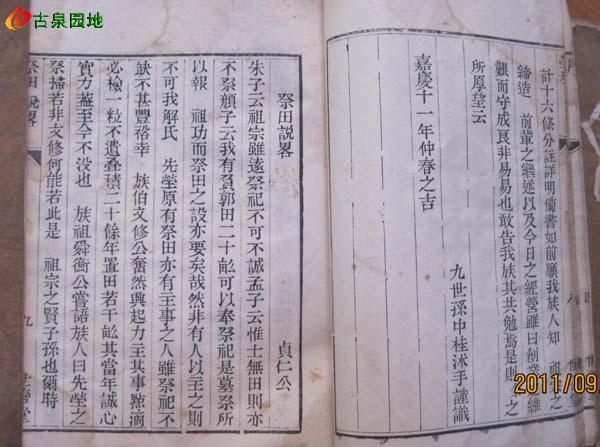 古泉园地
計十六條分註詳明備書如前願我族人知 祖宗之
締造 前輩之繼述以及今日之經營雖曰創業維
艱而守成良非易易也敢告我族其共勉焉是則 之
所厚望云
嘉慶十一年仲春之吉
九世孫中桂沭手謹識
祭田說畧
貞仁公
朱子云祖宗雖遠祭祀不可不誠孟子云惟士無田則亦
不祭顏子云我有負郭田二十畝可以奉祭祀是墓祭所
以報 祖功而祭田之設亦要矣哉然非有人以主之則
不可我解氏 先塋原有祭田亦有主事之人雖祭祀不
缺不甚豐裕幸 族伯文修公奮然興起力主其事點滴
必檢一粒不遺叠積二十餘年置田若干畝其當年誠心
實力蓋至今不没也 族祖舜衡公嘗語族人曰先塋之
祭掃若非文修何能若此是 祖宗之賢子孫也爾時
祭田說畧
九
2011/09